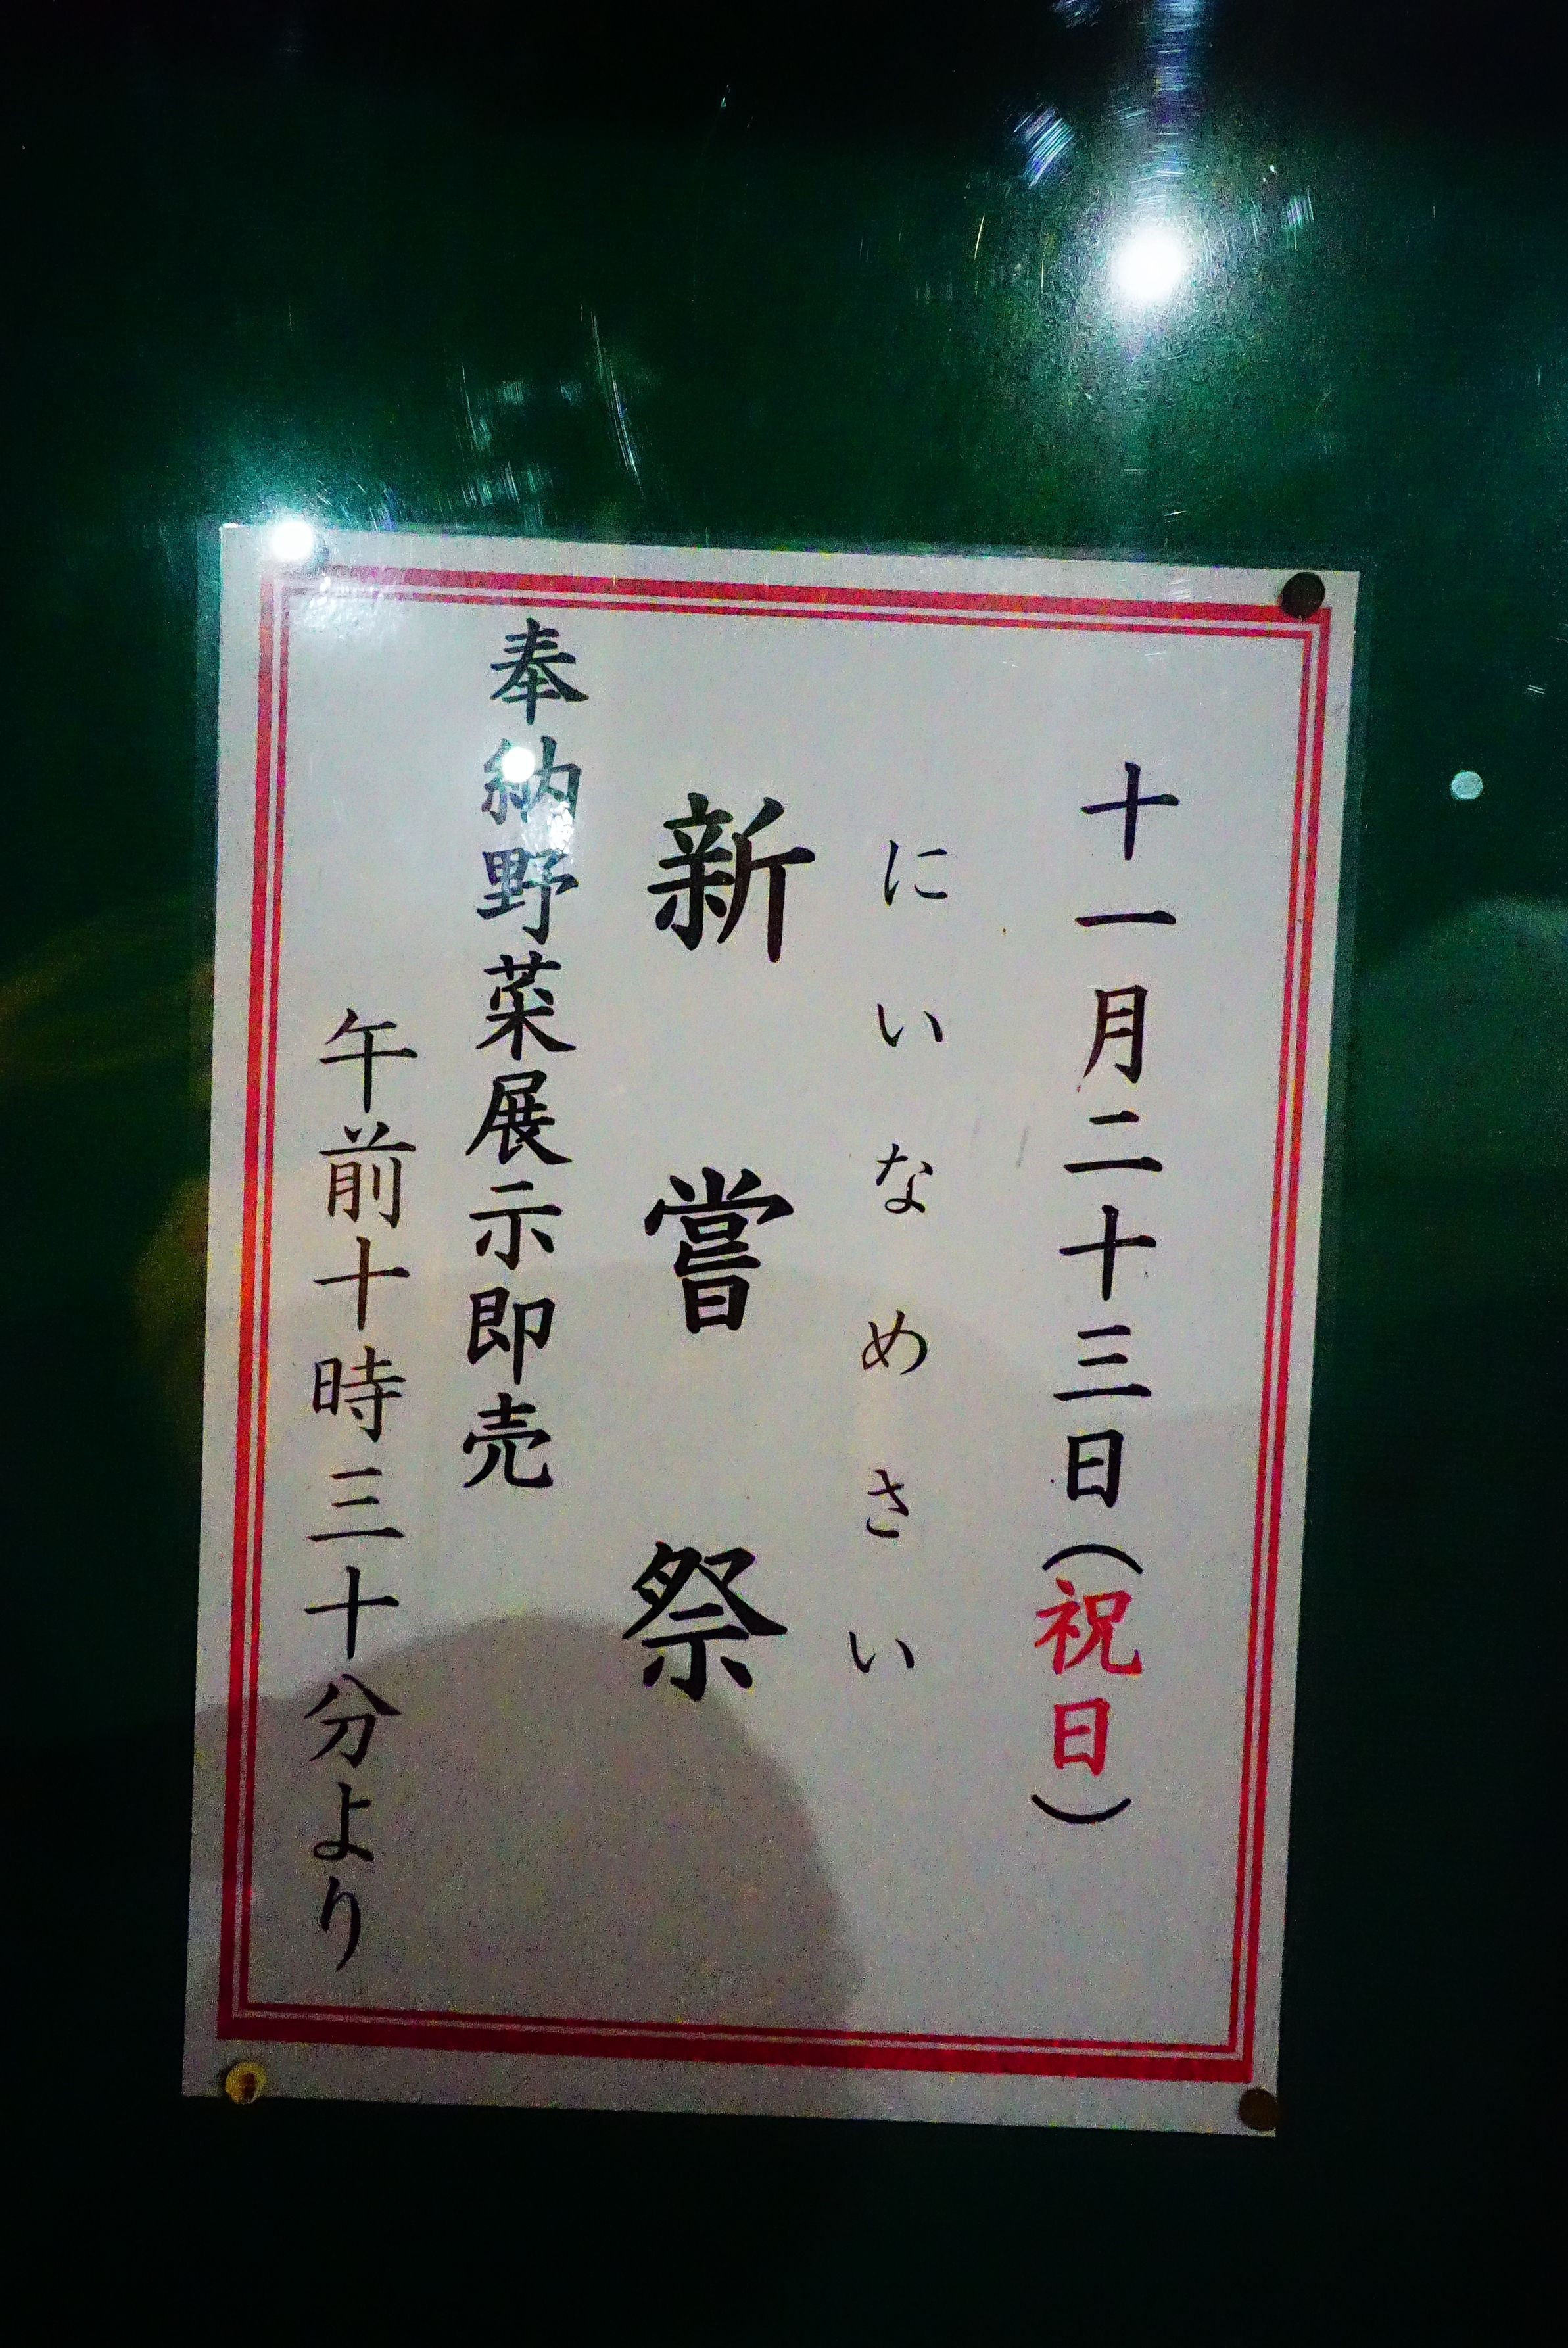 十一月二十三日（祝日）
にいなめさい
新嘗祭
奉納野菜展示即売
午前十時三十分より